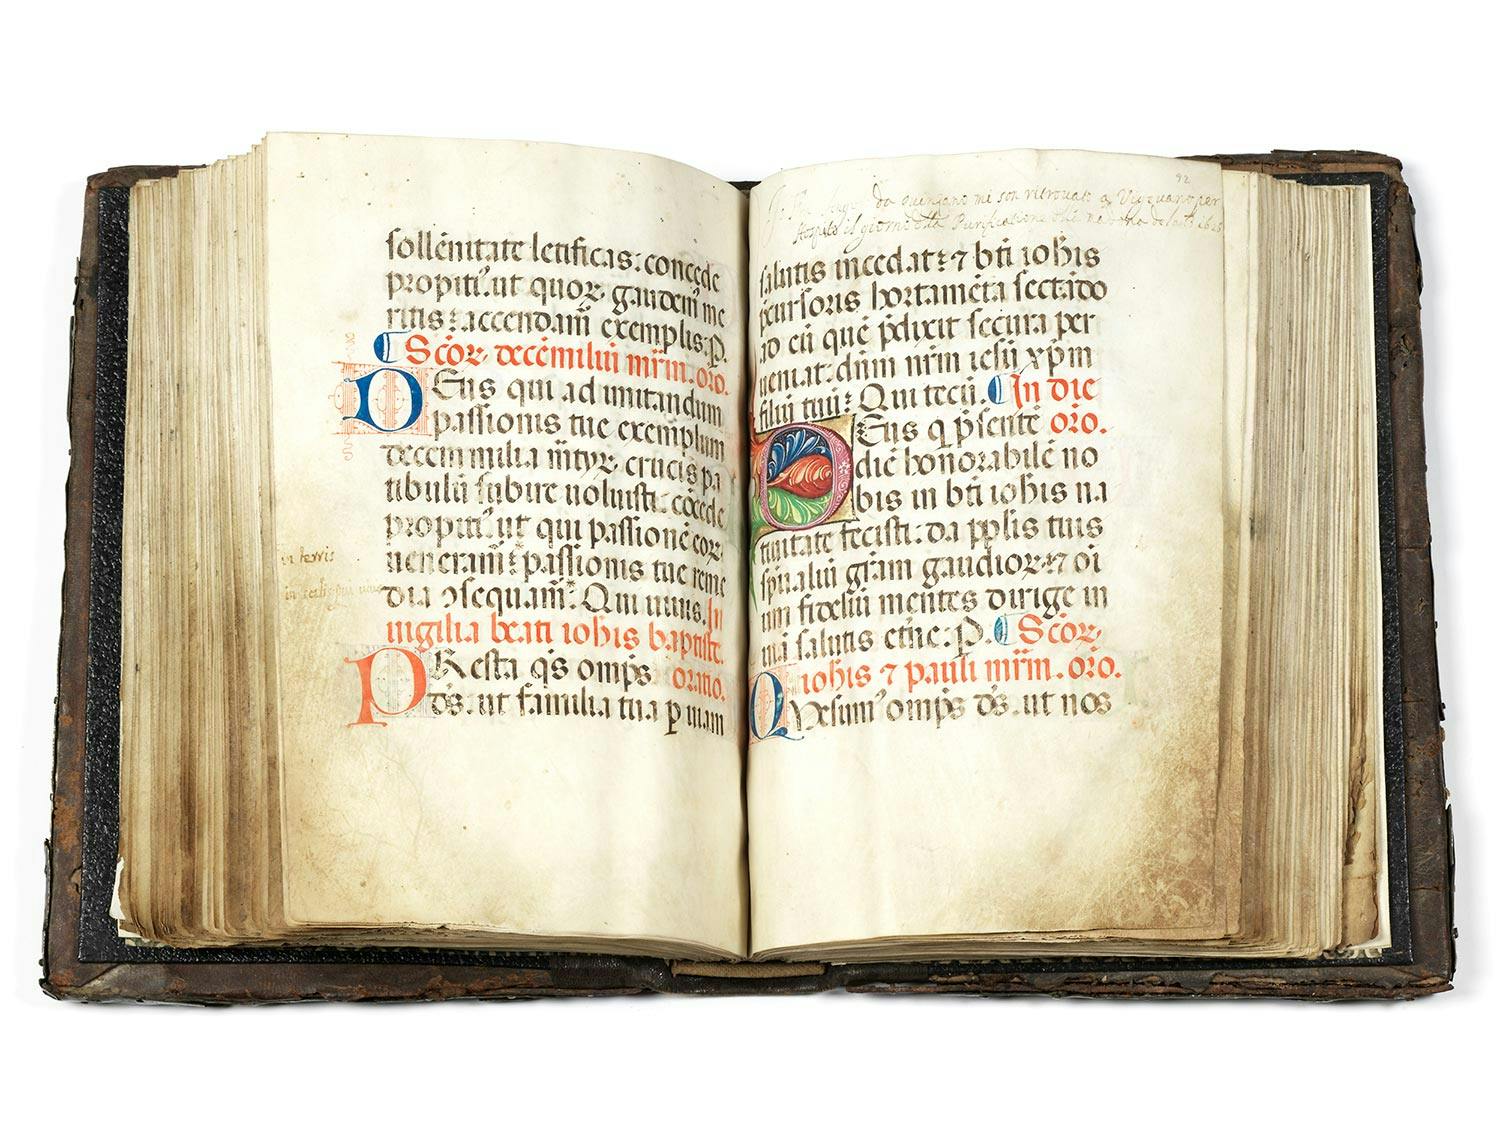 sollēnitate letificas: concede
propitiꝰ. ut quoꝝ gaudemꝰ me
ritis: accendam̄ exemplis: P.
Scōꝝ decēmiliū mr̄m. oro.
DEus qui ad imitandum
passionis tue exemplum
decem milia mr̄tyꝝ crucis pa
tibulū subire uoluisti: cōcede
propitiꝰ. ut qui passionē eoꝝ
ueneram̄: passionis tue reme
dia ꝯsequam̄: Qui uiuis. In
uigilia beati iohis baptiste.
PResta qs omps oratio.
ds. ut familia tua p uiam
in terris
92
da quinzano mi son ritrouato a
il giorno Purificatione 1625
salutis incedat: ⁊ bti iohis
pcursoris hortamēta sectādo
ad eū quē pdixit secura per
ueniat. dnm nrm iesū xpm
filiū tuū: Qui tecū. In die
DEus q psente oro.
diē honorabilē no
bis in bti iohis na
tiuitate fecisti: da pplis tuis
spiraliū gram gaudioꝝ: ⁊ oi
um fideliū mentes dirige in
uiā salutis etne: P. Scōꝝ
iohis ⁊ pauli mr̄m. oro.
QVesumꝰ omps ds. ut nos